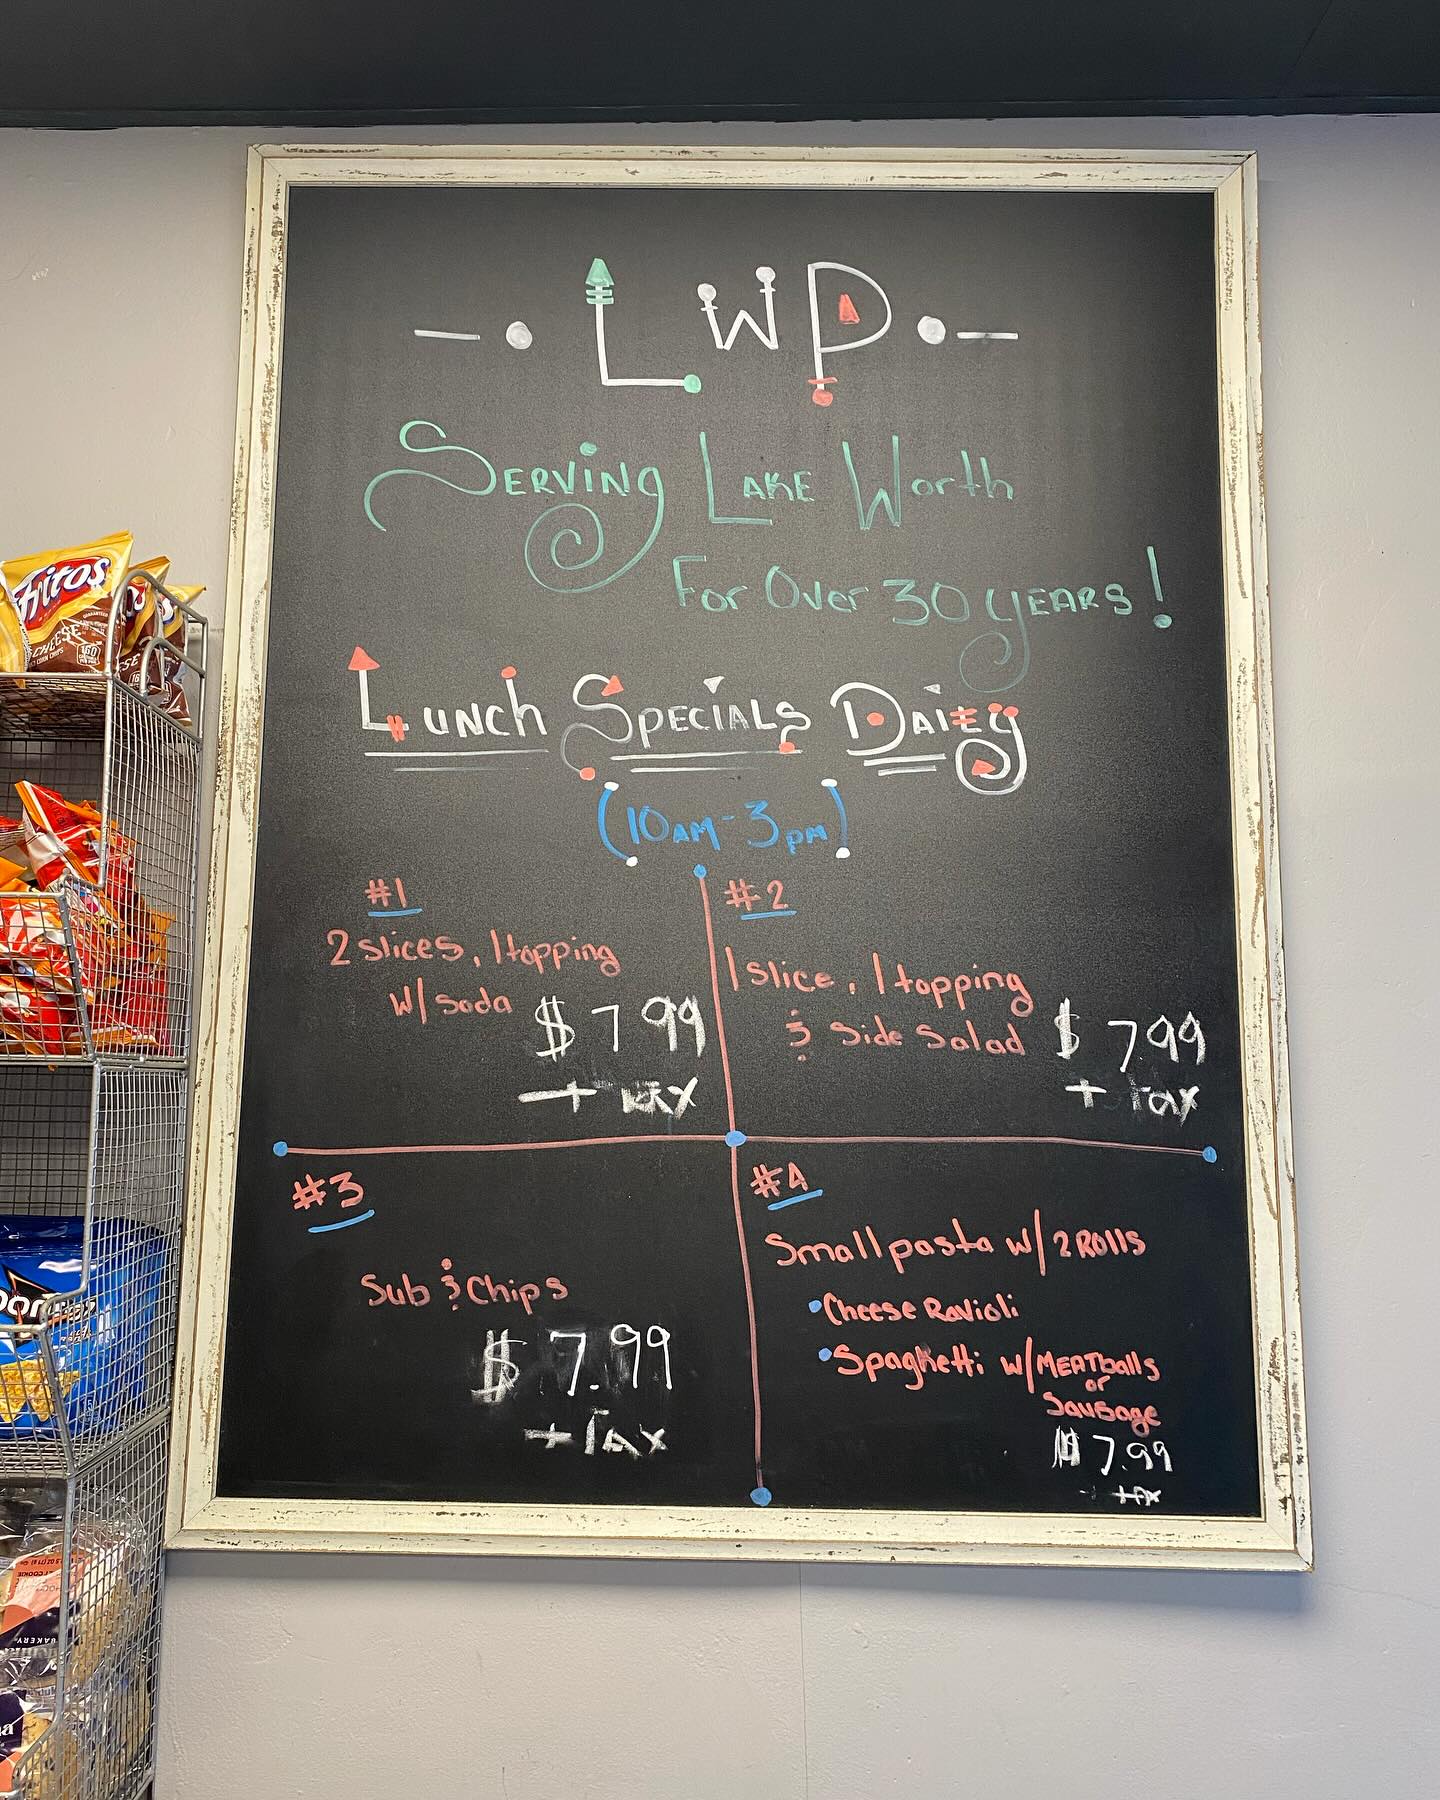 LWP
Serving Lake Worth
For Over 30 years!
Lunch Specials Daily
(10am-3pm)
#1
2 slices, 1 topping
w/ soda
$7.99
+ Tax
#2
1 slice, 1 topping
& Side Salad
$7.99
+ Tax
#3
Sub & Chips
$7.99
+ Tax
#4
Small pasta w/ 2 Rolls
• Cheese Ravioli
• Spaghetti w/ Meatballs
or
Sausage
$7.99
+ tax
Fritos
CHEESE
160